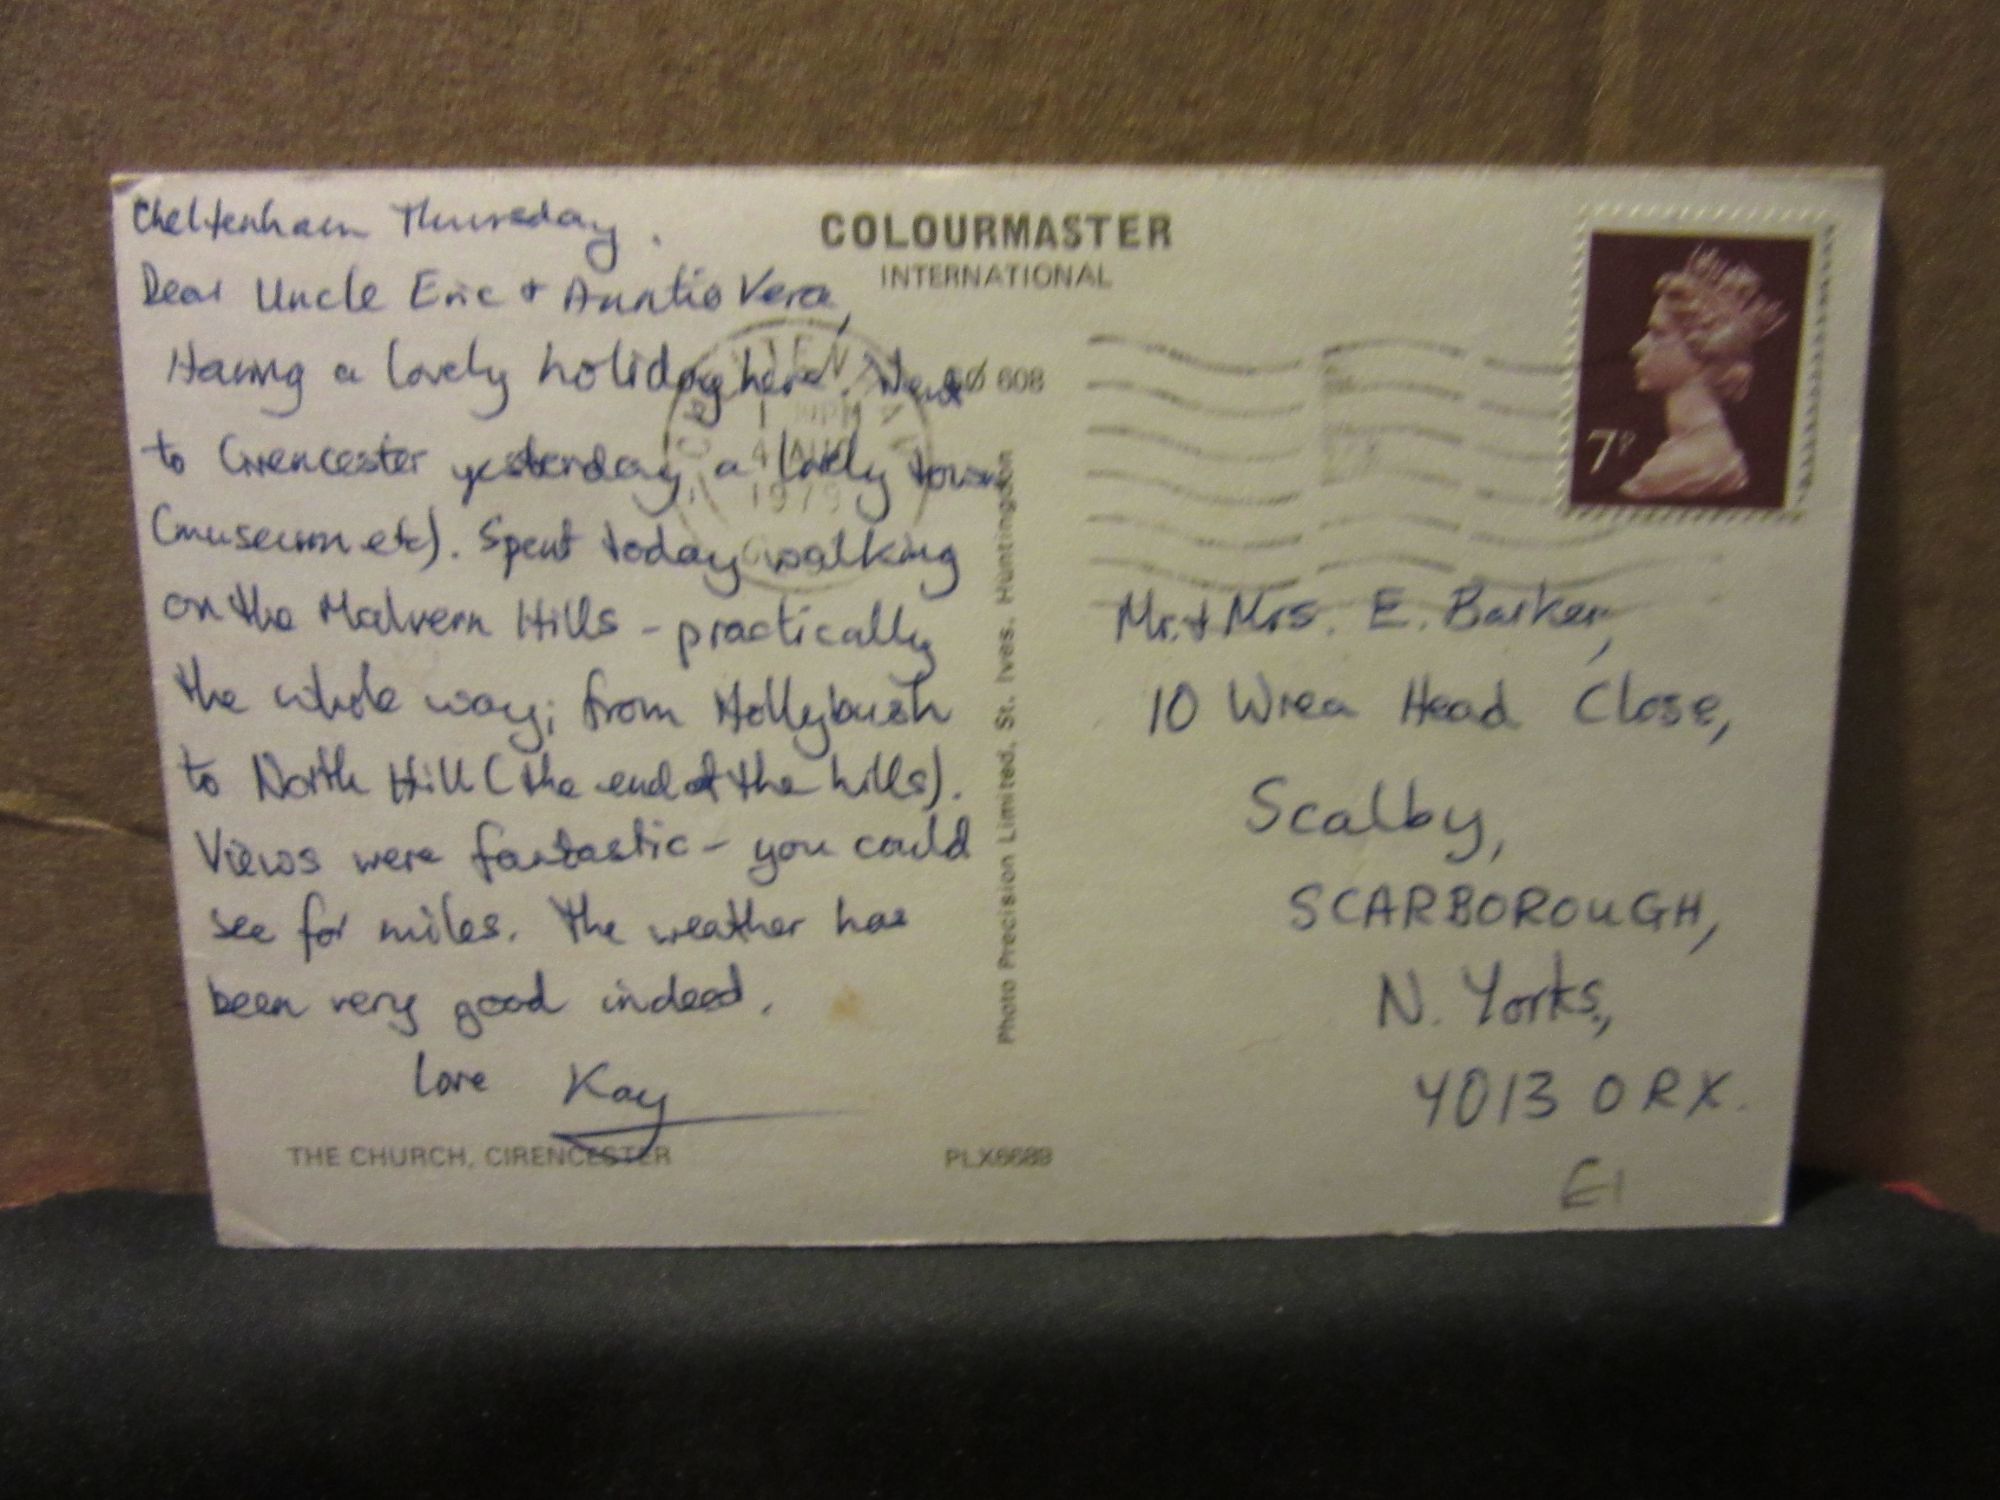 Cheltenham Thursday.
Dear Uncle Eric + Auntie Vera,
Having a lovely holiday here. Went
to Cirencester yesterday, a lovely town
(museum etc). Spent today walking
on the Malvern Hills - practically
the whole way; from Hollybush
to North Hill (the end of the hills).
Views were fantastic - you could
see for miles. The weather has
been very good indeed.
love Kay
THE CHURCH, CIRENCESTER
PLX6689
COLOURMASTER
INTERNATIONAL
608
Photo Precision Limited, St. Ives, Huntingdon
CHELTENHAM
PM
4 AUG
1979
7P
Mr. + Mrs. E. Barker,
10 Wrea Head Close,
Scalby,
SCARBOROUGH,
N. Yorks.,
YO13 0RX.
£1